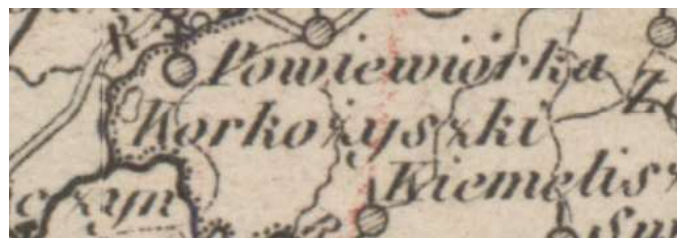 Powiewiórka
Korkożyszki
Kiemelis
czyn